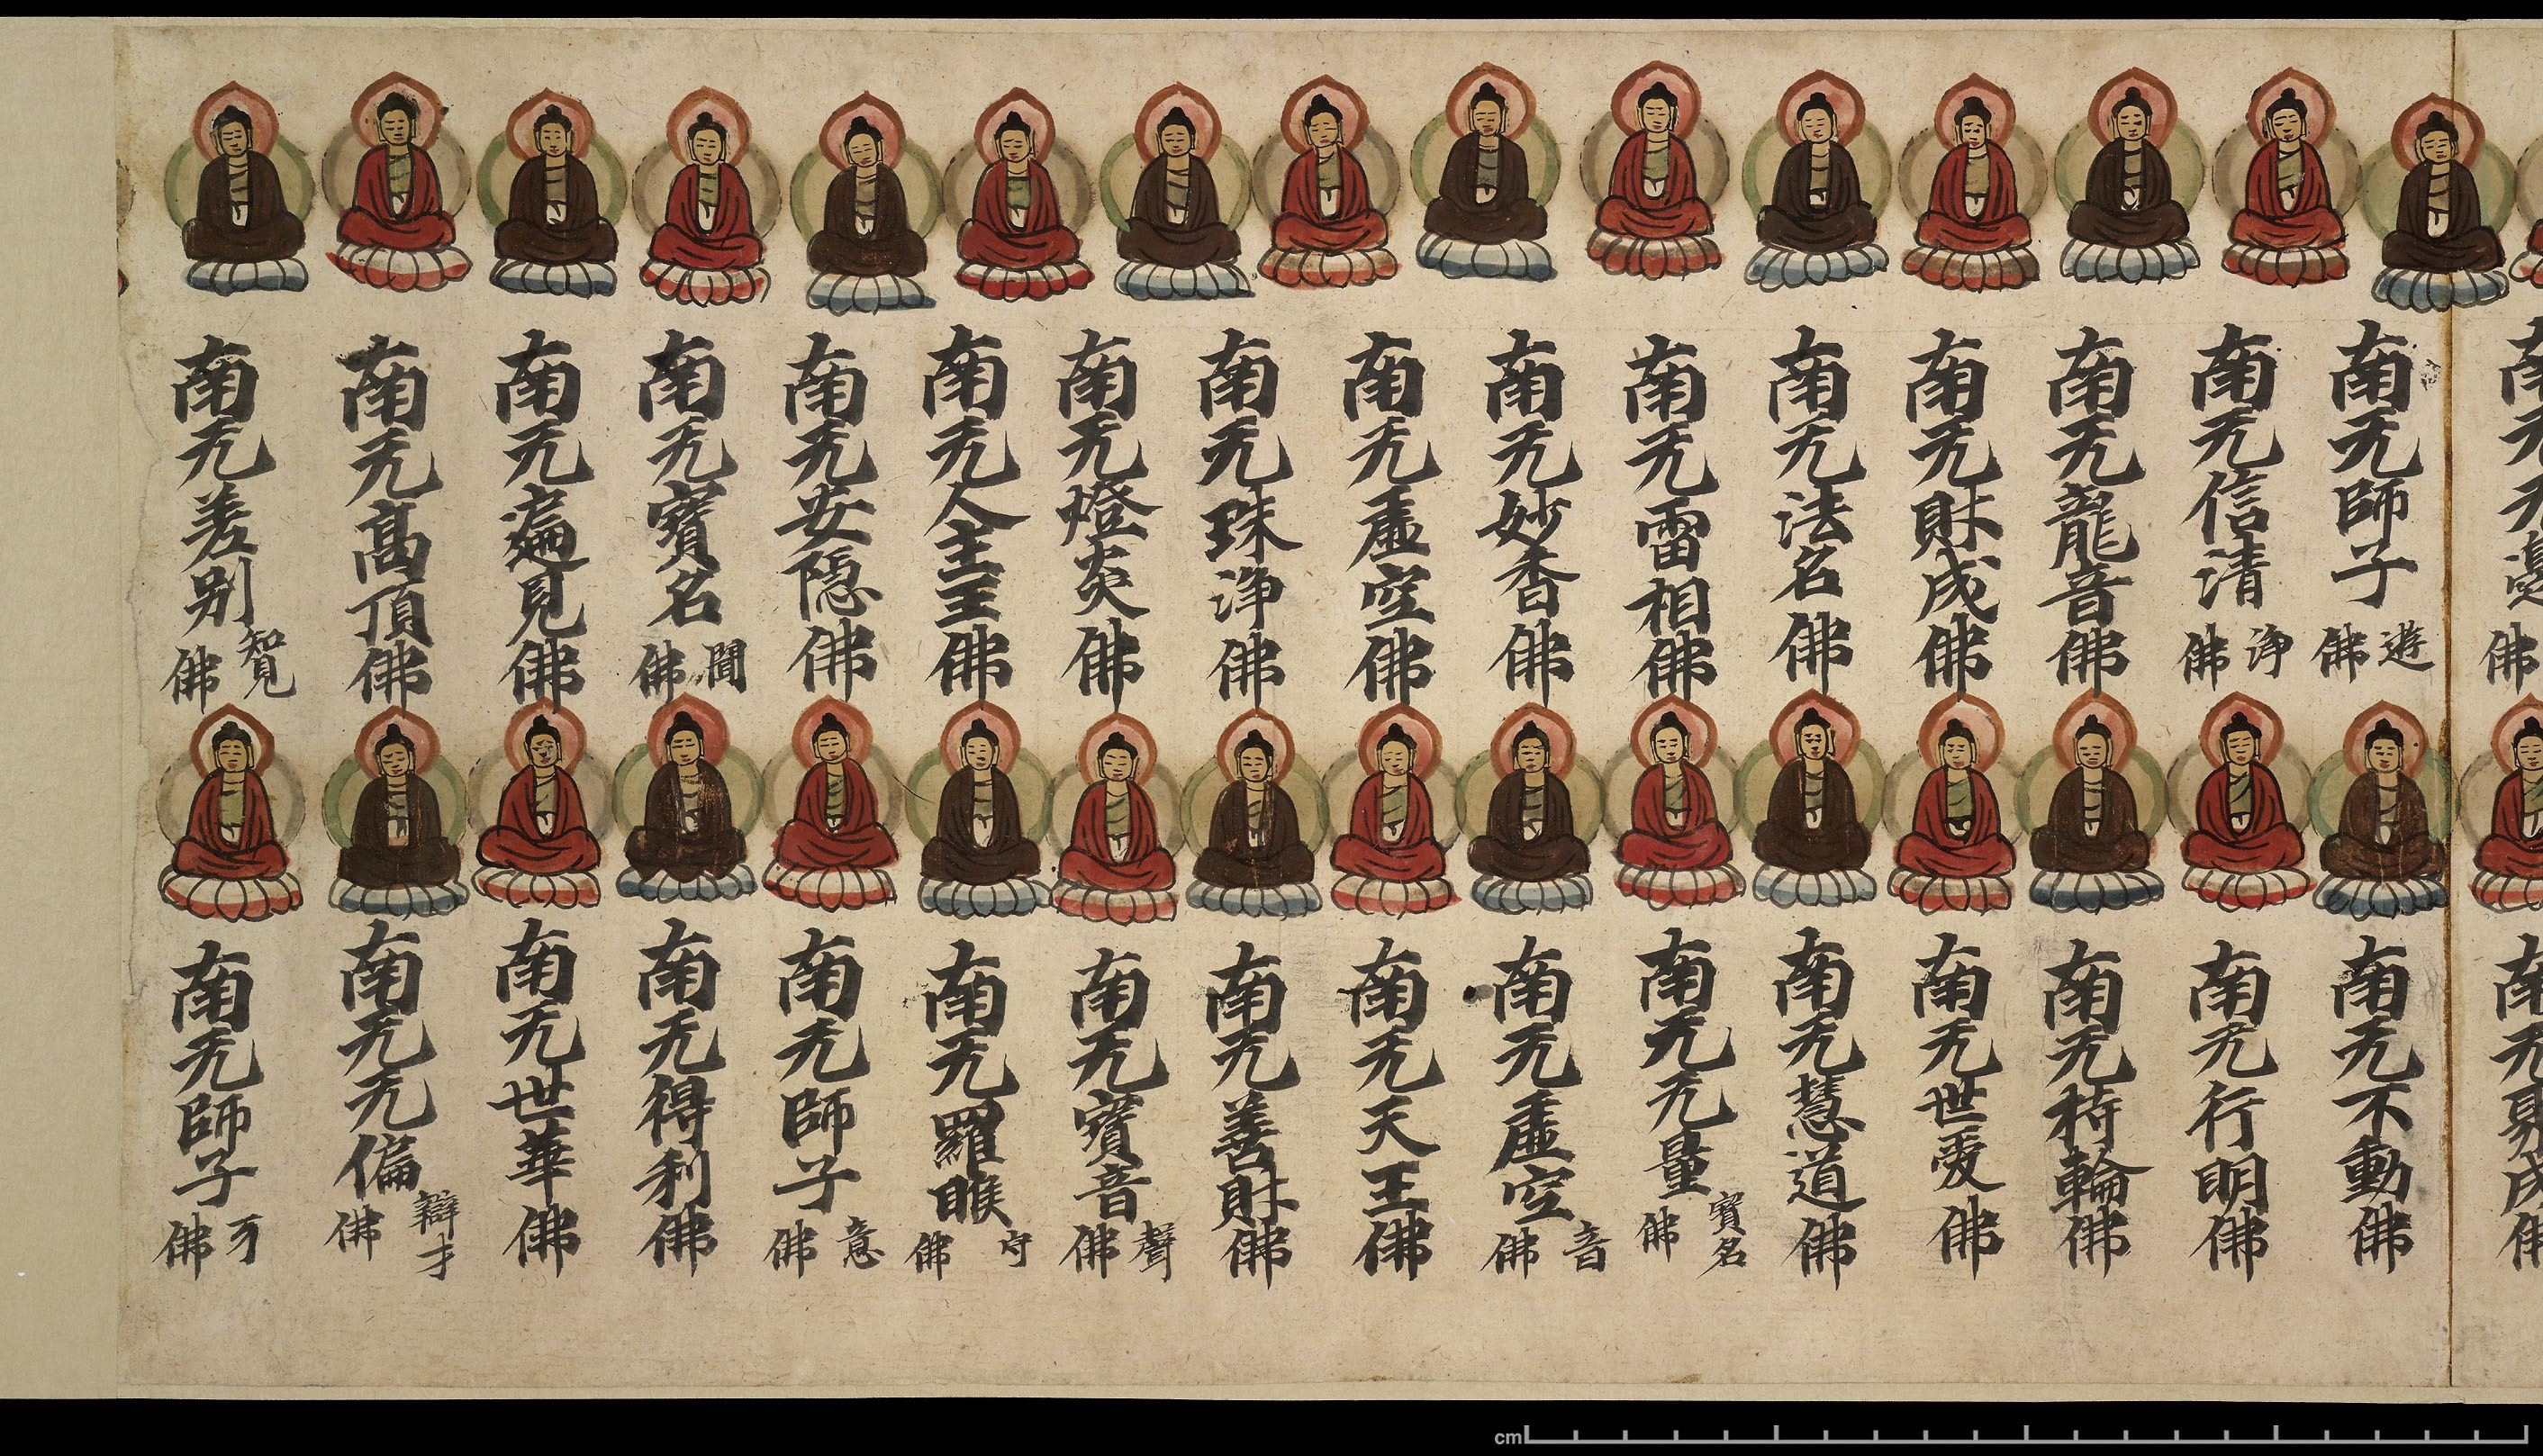 南无師子遊佛
南无信清浄佛
南无龍音佛
南无財成佛
南无法名佛
南无雷相佛
南无妙香佛
南无虛空佛
南无珠浄佛
南无燈炎佛
南无人主王佛
南无安隱佛
南无寶名聞佛
南无遍見佛
南无髙頂佛
南无差别智見佛
南无不動佛
南无行明佛
南无持輪佛
南无世愛佛
南无慧道佛
南无无量寶名佛
南无虛空音佛
南无天王佛
南无善財佛
南无寶音聲佛
南无羅睺守佛
南无師子意佛
南无得利佛
南无世華佛
南无无偏辯才佛
南无師子牙佛
cm